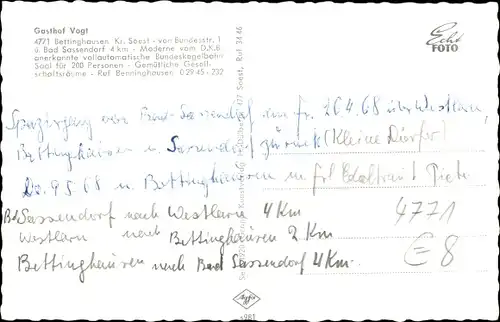 Gasthof Vogt
4771 Bettinghausen Kr. Soest · von Bundesstr. 1
u. Bad Sassendorf 4 km · Moderne vom D.K.B.
anerkannte vollautomatische Bundeskegelbahn
Saal für 200 Personen · Gemütliche Gesell-
schaftsräume · Ruf Benninghausen 02945 - 232
Echt
FOTO
Spaziergang von Bad-Sassendorf am Fr. 26.4.68 über Westlarn,
Bettinghausen u. Sassendorf zurück (Kleine Dörfer)
Do. 9.5.68 n. Bettinghausen m. Frl.
Bd Sassendorf nach Westlarn 4 Km
Westlarn nach Bettinghausen 2 Km
Bettinghausen nach Bad Sassendorf 4 Km.
4771
€ 8
477 Soest, Ruf 3446
Agfa